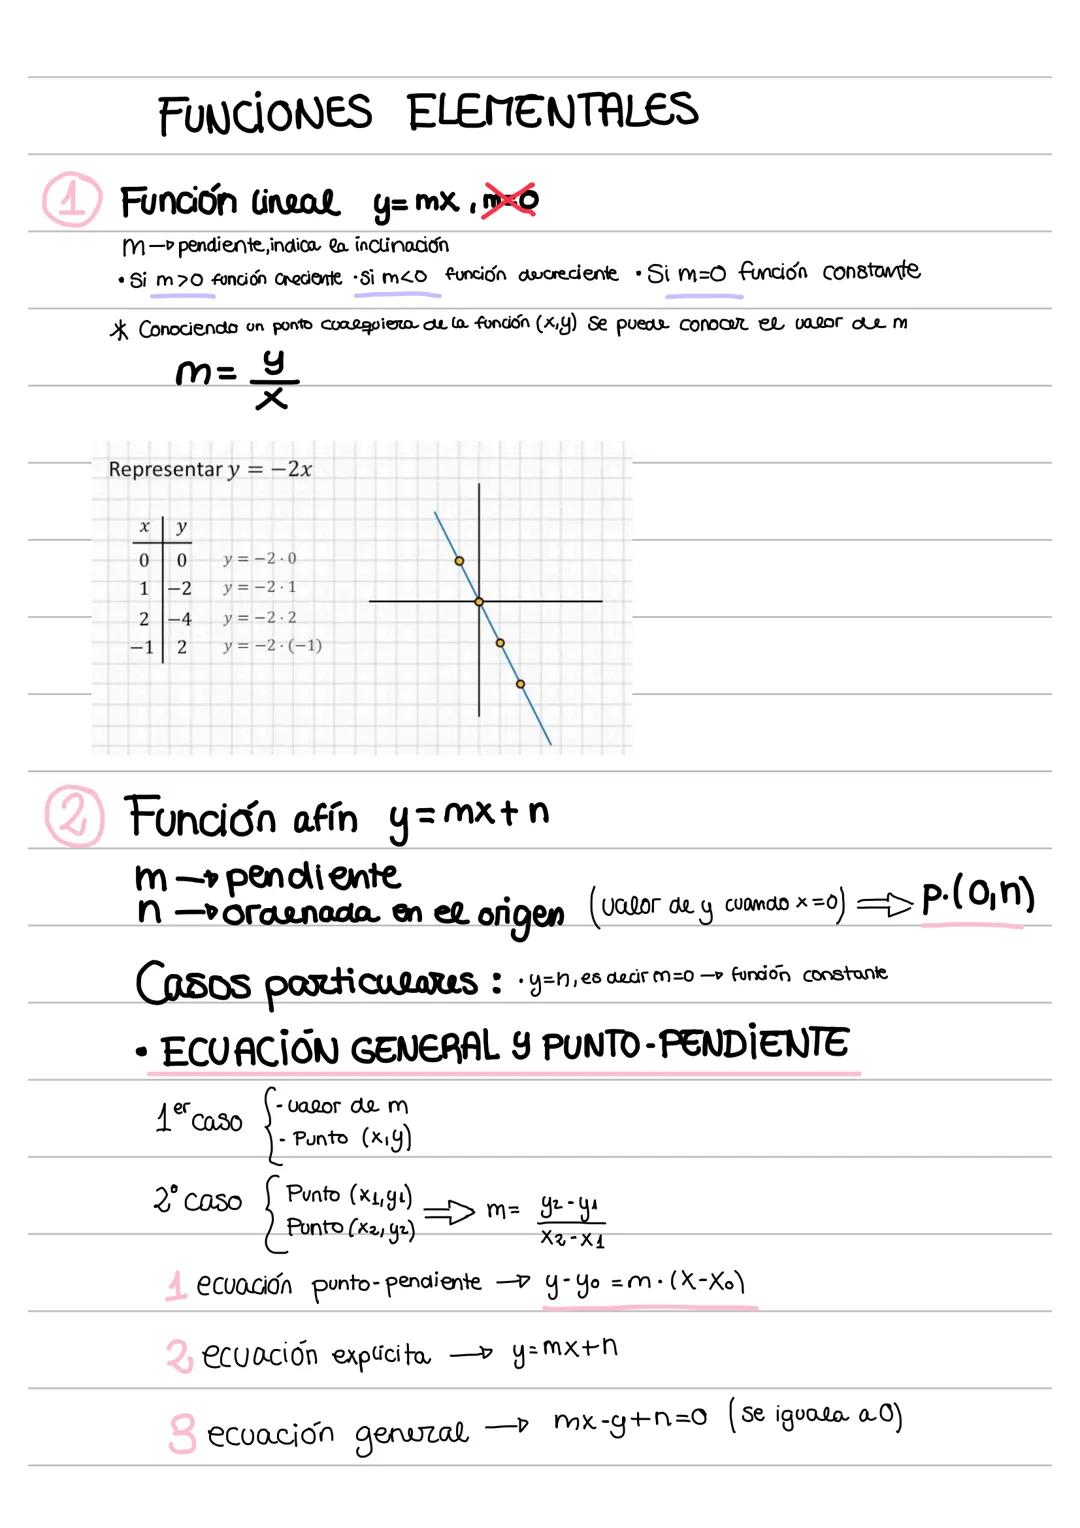 FUNCIONES ELEMENTALES
1 Función lineal y=mx, m=0
m→pendiente, indica la inclinación
• Si m>0 función creciente • Si m<0 función decreciente • Si m=0 función constante
* Conociendo un ponto cualquiera de la función (x,y) se puede conocer el valor de m
m= y/x
Representar y = −2x
x y
0 0 y = −2 · 0
1 −2 y = −2 · 1
2 −4 y = −2 · 2
−1 2 y = −2 · (−1)
2 Función afín y=mx+n
m→pendiente
n→ordenada en el origen (valor de y cuando x=0) ⇒ p.(0,n)
Casos particulares: • y=n, es decir m=0 → función constante
• ECUACIÓN GENERAL Y PUNTO-PENDIENTE
1er caso { - valor de m
- Punto (x,y)
2º caso { Punto (x1,y1)
Punto (x2,y2) ⇒ m= y2-y1/x2-x1
1 ecuación punto-pendiente → y-y0 = m·(x-x0)
2 ecuación explícita → y=mx+n
3 ecuación general → mx-y+n=0 (se iguala a 0)